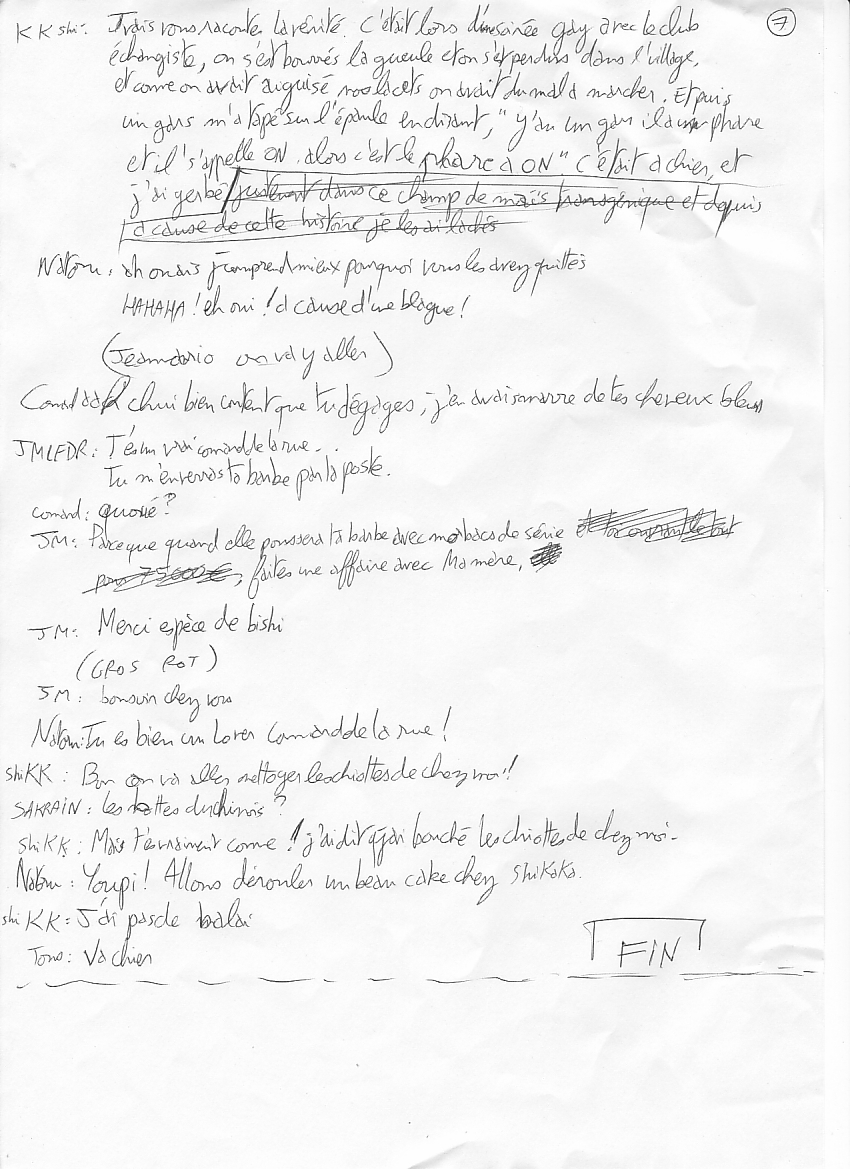 7
KKshi: J'vais vous raconter la vérité. C'était lors d'une soirée gay avec le club
échangiste, on s'est bourrés la gueule et on s'est perdus dans l'village,
et come on avait aiguisé nos lacets on avait du mal à marcher. Et puis
un gars m'a tapé sur l'épaule en disant, "y'a un gars il a un phare
et il s'appelle ON, alors c'est le phare à ON" c'était à chier, et
j'ai gerbé justement dans ce champ de maïs transgénique et depuis
à cause de cette histoire je les ai lachés
: ah ouais j'comprend mieux pourquoi vous les avez quittés
HAHAHA! eh oui! à cause d'une blague!
(Jeanmario on va y aller)
chui bien content que tu dégages, j'en avais marre de tes cheveux bleus
JMLFDR: T'es un vrai comard de la rue...
Tu m'enverras ta barbe par la poste.
comard: quoué?
JM: Parceque quand elle poussera ta barbe avec mes bacs de série
, faites une affaire avec Mamère,
JM: Merci espèce de bishi
(GROS ROT)
JM: bonsoin chez vous
: Tu es bien un Lover Comard de la rue!
shiKK: Bon on va aller nettoyer les chiottes de chez moi!
SAKRAIN: les bottes du chinois?
shiKK: Mais t'es vraiment come! j'ai dit q j'ai bouché les chiottes de chez moi.
: Youpi! Allons dérouler un beau cake chez Shikaka.
shiKK: J'ai pas de balai
Tous: Va chier
FIN